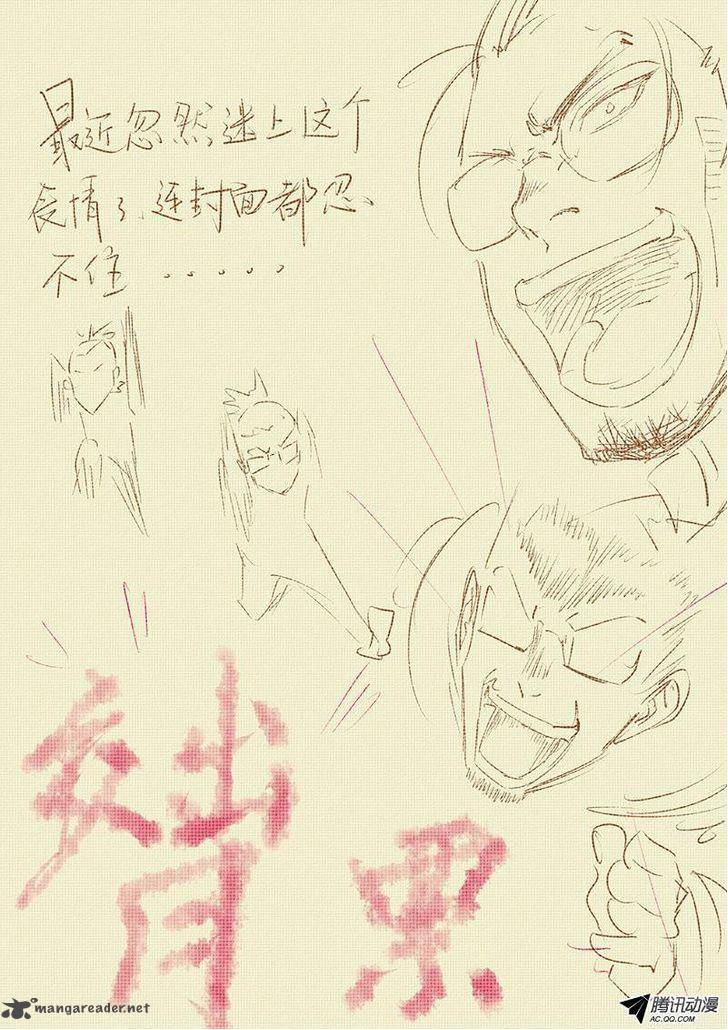 最近忽然迷上这个
表情了.连封面都忍
不住 . . . . .
累
mangareader.net
腾讯动漫
AC.QQ.COM